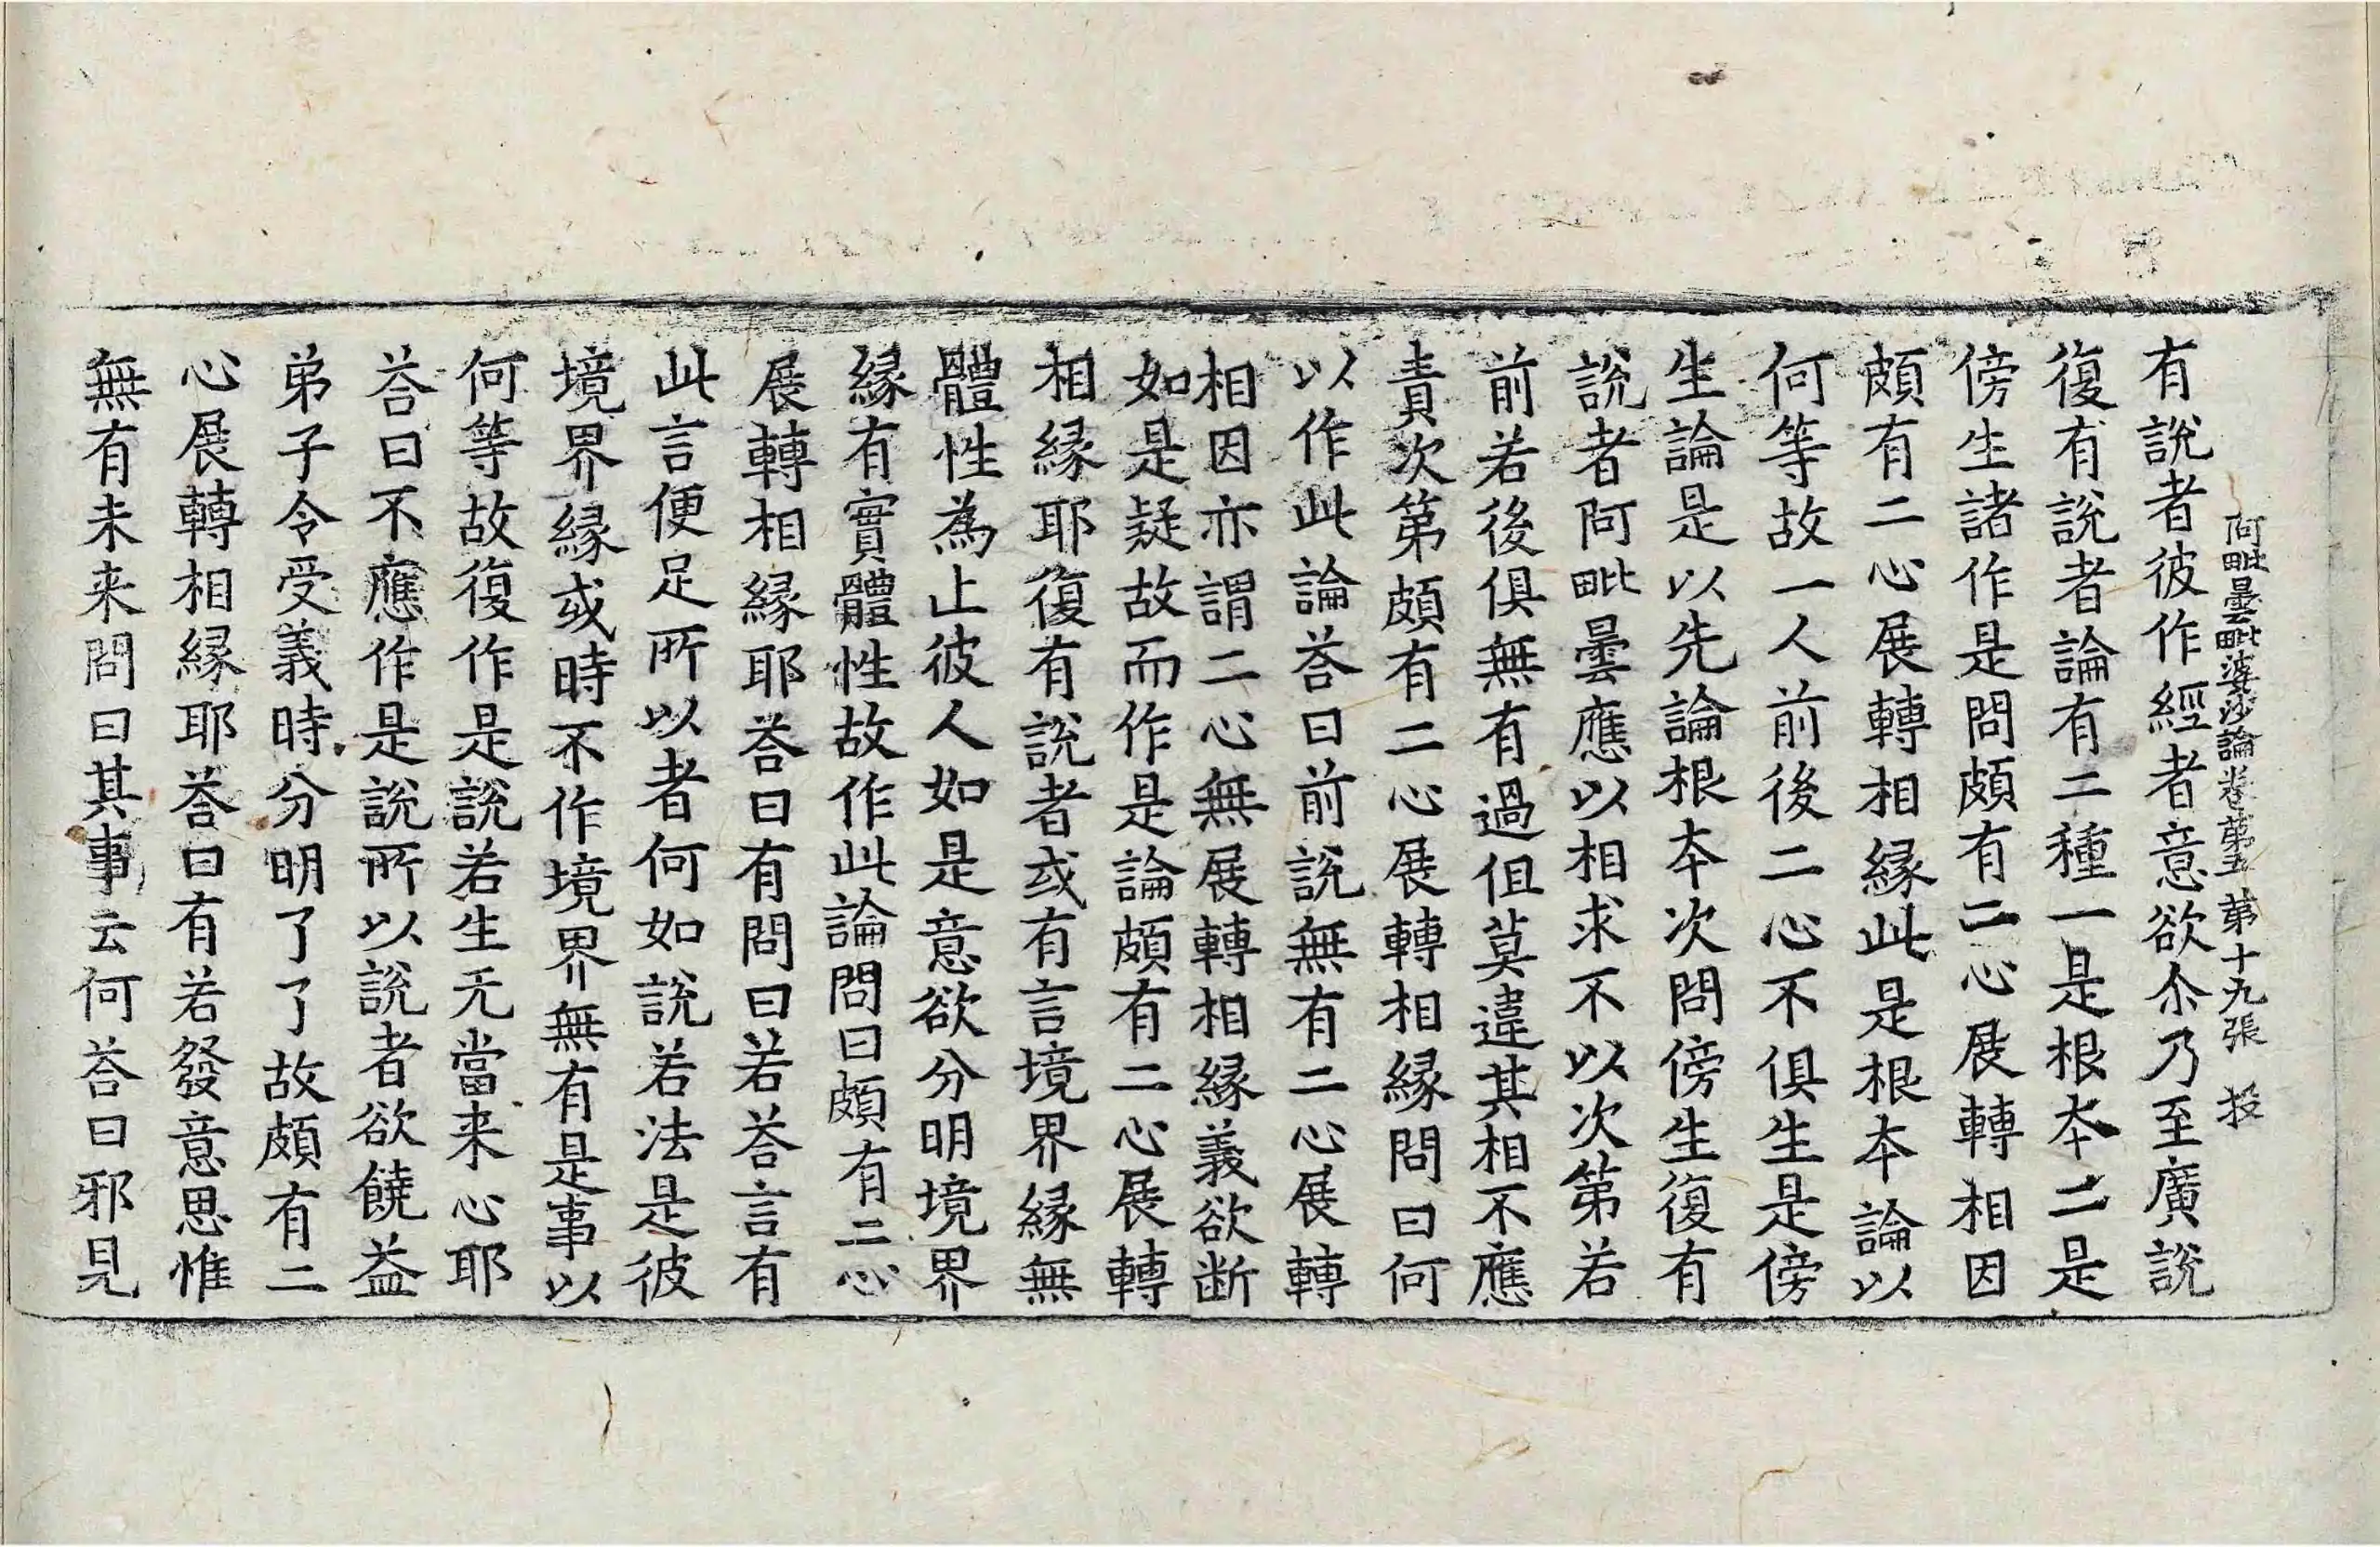 阿毗曇毗婆沙論卷第五 第十九張 投
有說者彼作經者意欲尒乃至廣說
復有說者論有二種一是根本二是
傍生諸作是問頗有二心展轉相因
頗有二心展轉相緣此是根本論以
何等故一人前後二心不俱生是傍
生論是以先論根本次問傍生復有
說者阿毗曇應以相求不以次第若
前若後俱無有過但莫違其相不應
責次第頗有二心展轉相緣問曰何
以作此論荅曰前說無有二心展轉
相因亦謂二心無展轉相緣義欲断
如是疑故而作是論頗有二心展轉
相緣耶復有說者或有言境界緣無
體性為止彼人如是意欲分明境界
緣有實體性故作此論問曰頗有二心
展轉相緣耶荅曰有問曰若荅言有
此言便足所以者何如說若法是彼
境界緣或時不作境界無有是事以
何等故復作是說若生无當来心耶
荅曰不應作是說所以說者欲饒益
弟子令受義時分明了了故頗有二
心展轉相緣耶荅曰有若發意思惟
無有未来問曰其事云何荅曰邪見